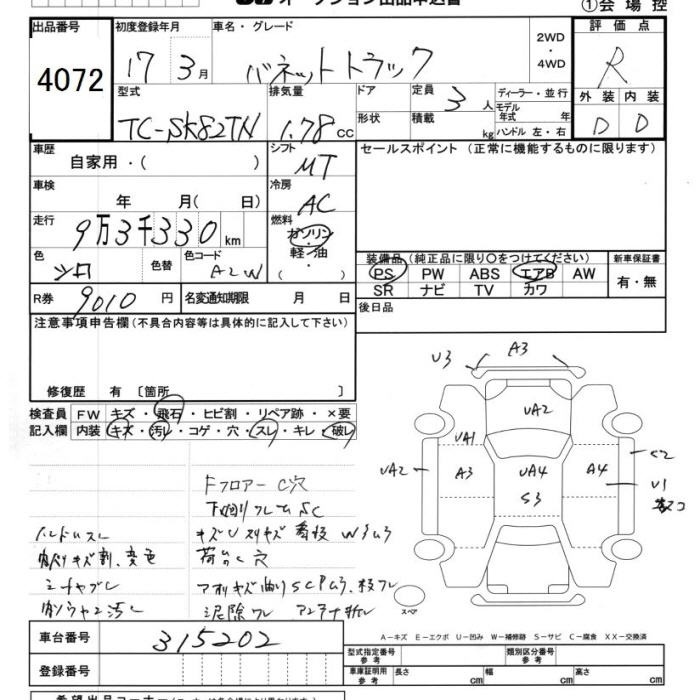 オークション出品申込書
①会場控
出品番号
4072
初度登録年月
17 3月
車名・グレード
バネットトラック
2WD
・
4WD
評価点
R
型式
TC-SK82TN
排気量
1.78 cc
ドア
形状
定員
3 人
積載
kg
ディーラー・並行
モデル年式 年
ハンドル 左・右
外装
D
内装
D
車歴
自家用・( )
シフト
MT
セールスポイント (正常に機能するものに限ります)
車検
年 月( 日)
冷房
AC
走行
9万3千330km
燃料
ガソリン
軽・油
( ・ )
色
シロ
色替
色コード
A2W
装備品 (純正品に限り○をつけてください)
PS PW ABS エアB AW
SR ナビ TV カワ
新車保証書
有・無
R券
9010 円
名変通知期限 月 日
後日品
注意事項申告欄(不具合内容等は具体的に記入して下さい)
修復歴 有 〔箇所 〕
検査員
記入欄
FW キズ・飛石・ヒビ割・リペア跡・×要
内装 キズ・汚レ・コゲ・穴・スレ・キレ・破レ
Fフロアー C穴
下廻りフレームSC
ハンドルスレ
キズUスリキズ 看板Wムラ
内ハリキズ割、変色
荷台C穴
シートヤブレ
U3
A3
UA2
UA1
UA2
A3
UA4
S3
A4
S2
U1
スペア
A-キズ E-エクボ U-凹み W-補修跡 S-サビ C-腐食 XX-交換済
車台番号
315202
登録番号
型式指定番号
参考
類別区分番号
参考
車庫証明用
参考
長さ cm
幅 cm
高さ cm